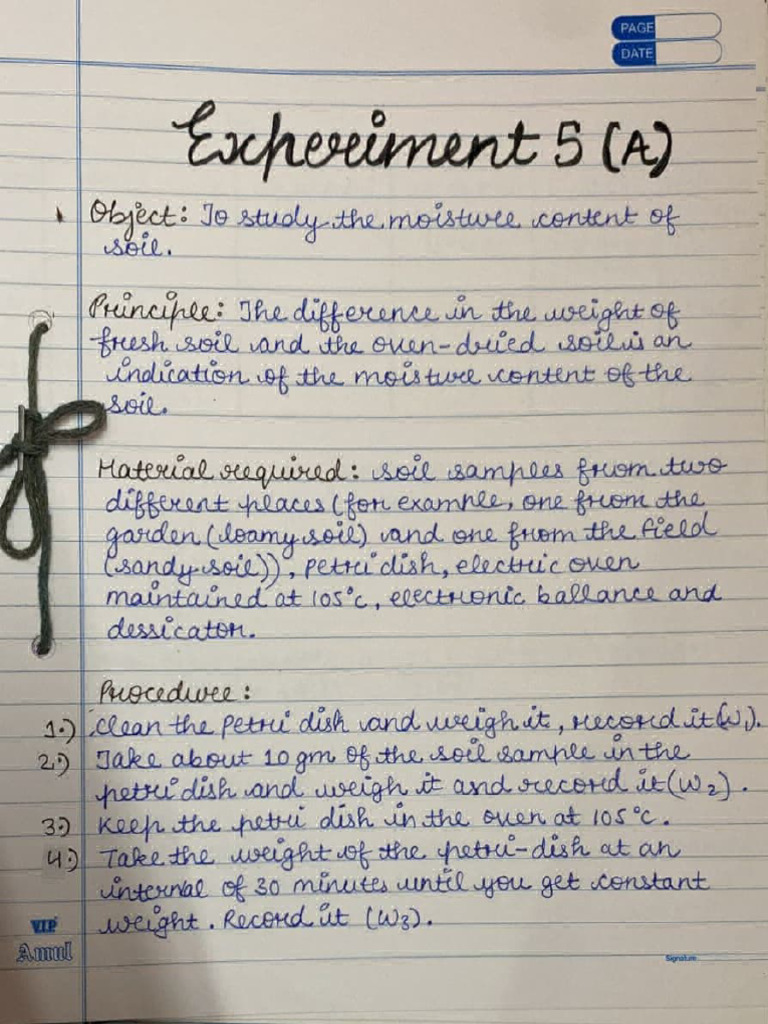 PAGE
DATE
Experiment 5 (A)
Object: To study the moisture content of
soil.
Principle: The difference in the weight of
fresh soil and the oven-dried soil is an
indication of the moisture content of the
soil.
Material required: soil samples from two
different places (for example, one from the
garden (loamy soil) and one from the field
(sandy soil)), petri dish, electric oven
maintained at 105°c, electronic ballance and
dessicator.
Procedure:
1.) Clean the petri dish and weigh it, record it (W1).
2.) Take about 10 gm of the soil sample in the
petri dish and weigh it and record it (W2).
3.) Keep the petri dish in the oven at 105°c.
4.) Take the weight of the petri-dish at an
internal of 30 minutes until you get constant
weight. Record it (W3).
VIP
Amul
Signature